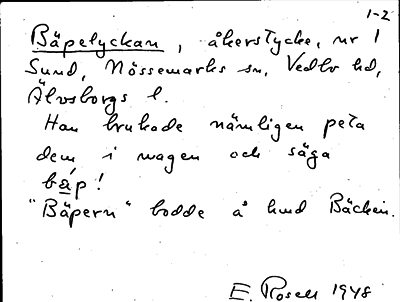 1-2
Bäpelyckan, åkerstycke, nr 1
Sund, Nössemarks sn, Vedbo hd,
Älvsborgs l.
Han brukade nämligen peta
dem i magen och säga
bäp!
"Bäpern" bodde å hmd Bäcken.
E. Rosell 1948